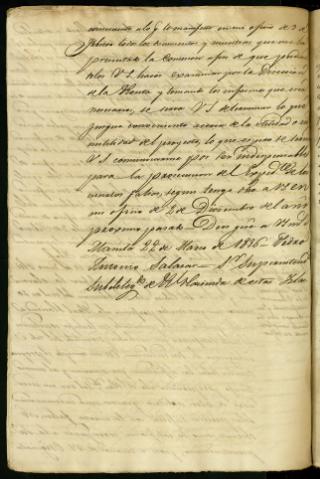 consecuente a lo q. le manifeste en mi oficio de 3 de
Febrero todos los documentos y muestras que me ha
presentado la Comision afin de que pudien-
dolos V.S. hacer examinar por la Direccion
de la Renta y tomando los informes que crea
necesarios, se sirva V.S. determinar lo que
juzgue conveniente acerca de la utilidad o in-
utilidad del proyecto, lo que espero se sirva
V.S. comunicarme por ser indispensable
para la prosecucion del Esped.te de la
falsa, segun tengo dho a V.S. en
mi oficio de 2 de Diciembre del año
proximo pasado. Dios gue a V.S. m.s a.s
Manila 22 de Marzo de 1836 Pedro
Antonio Salazar — S.r Superintend.te
Subdeleg.do de Rl Hacienda de estas Islas